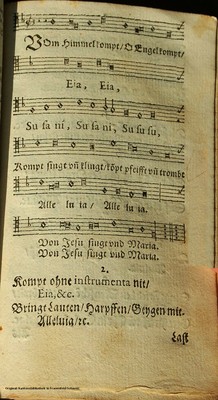 VOm Himmel kompt/ O Engel kompt/
Eia, Eia,
Su sa ni, Su sa ni, Su su su,
Kompt singt vñ klingt/ kõpt pfeifft vñ trombt
Alle lu ia/ Alle lu ia.
Von Jesu singt vnd Maria.
Von Jesu singt vnd Maria.
2.
Kompt ohne instrumenta nit/
Eia, &c.
Bringt Lauten/ Harpffen/ Geygen mit.
Alleluia/ ꝛc.
Last